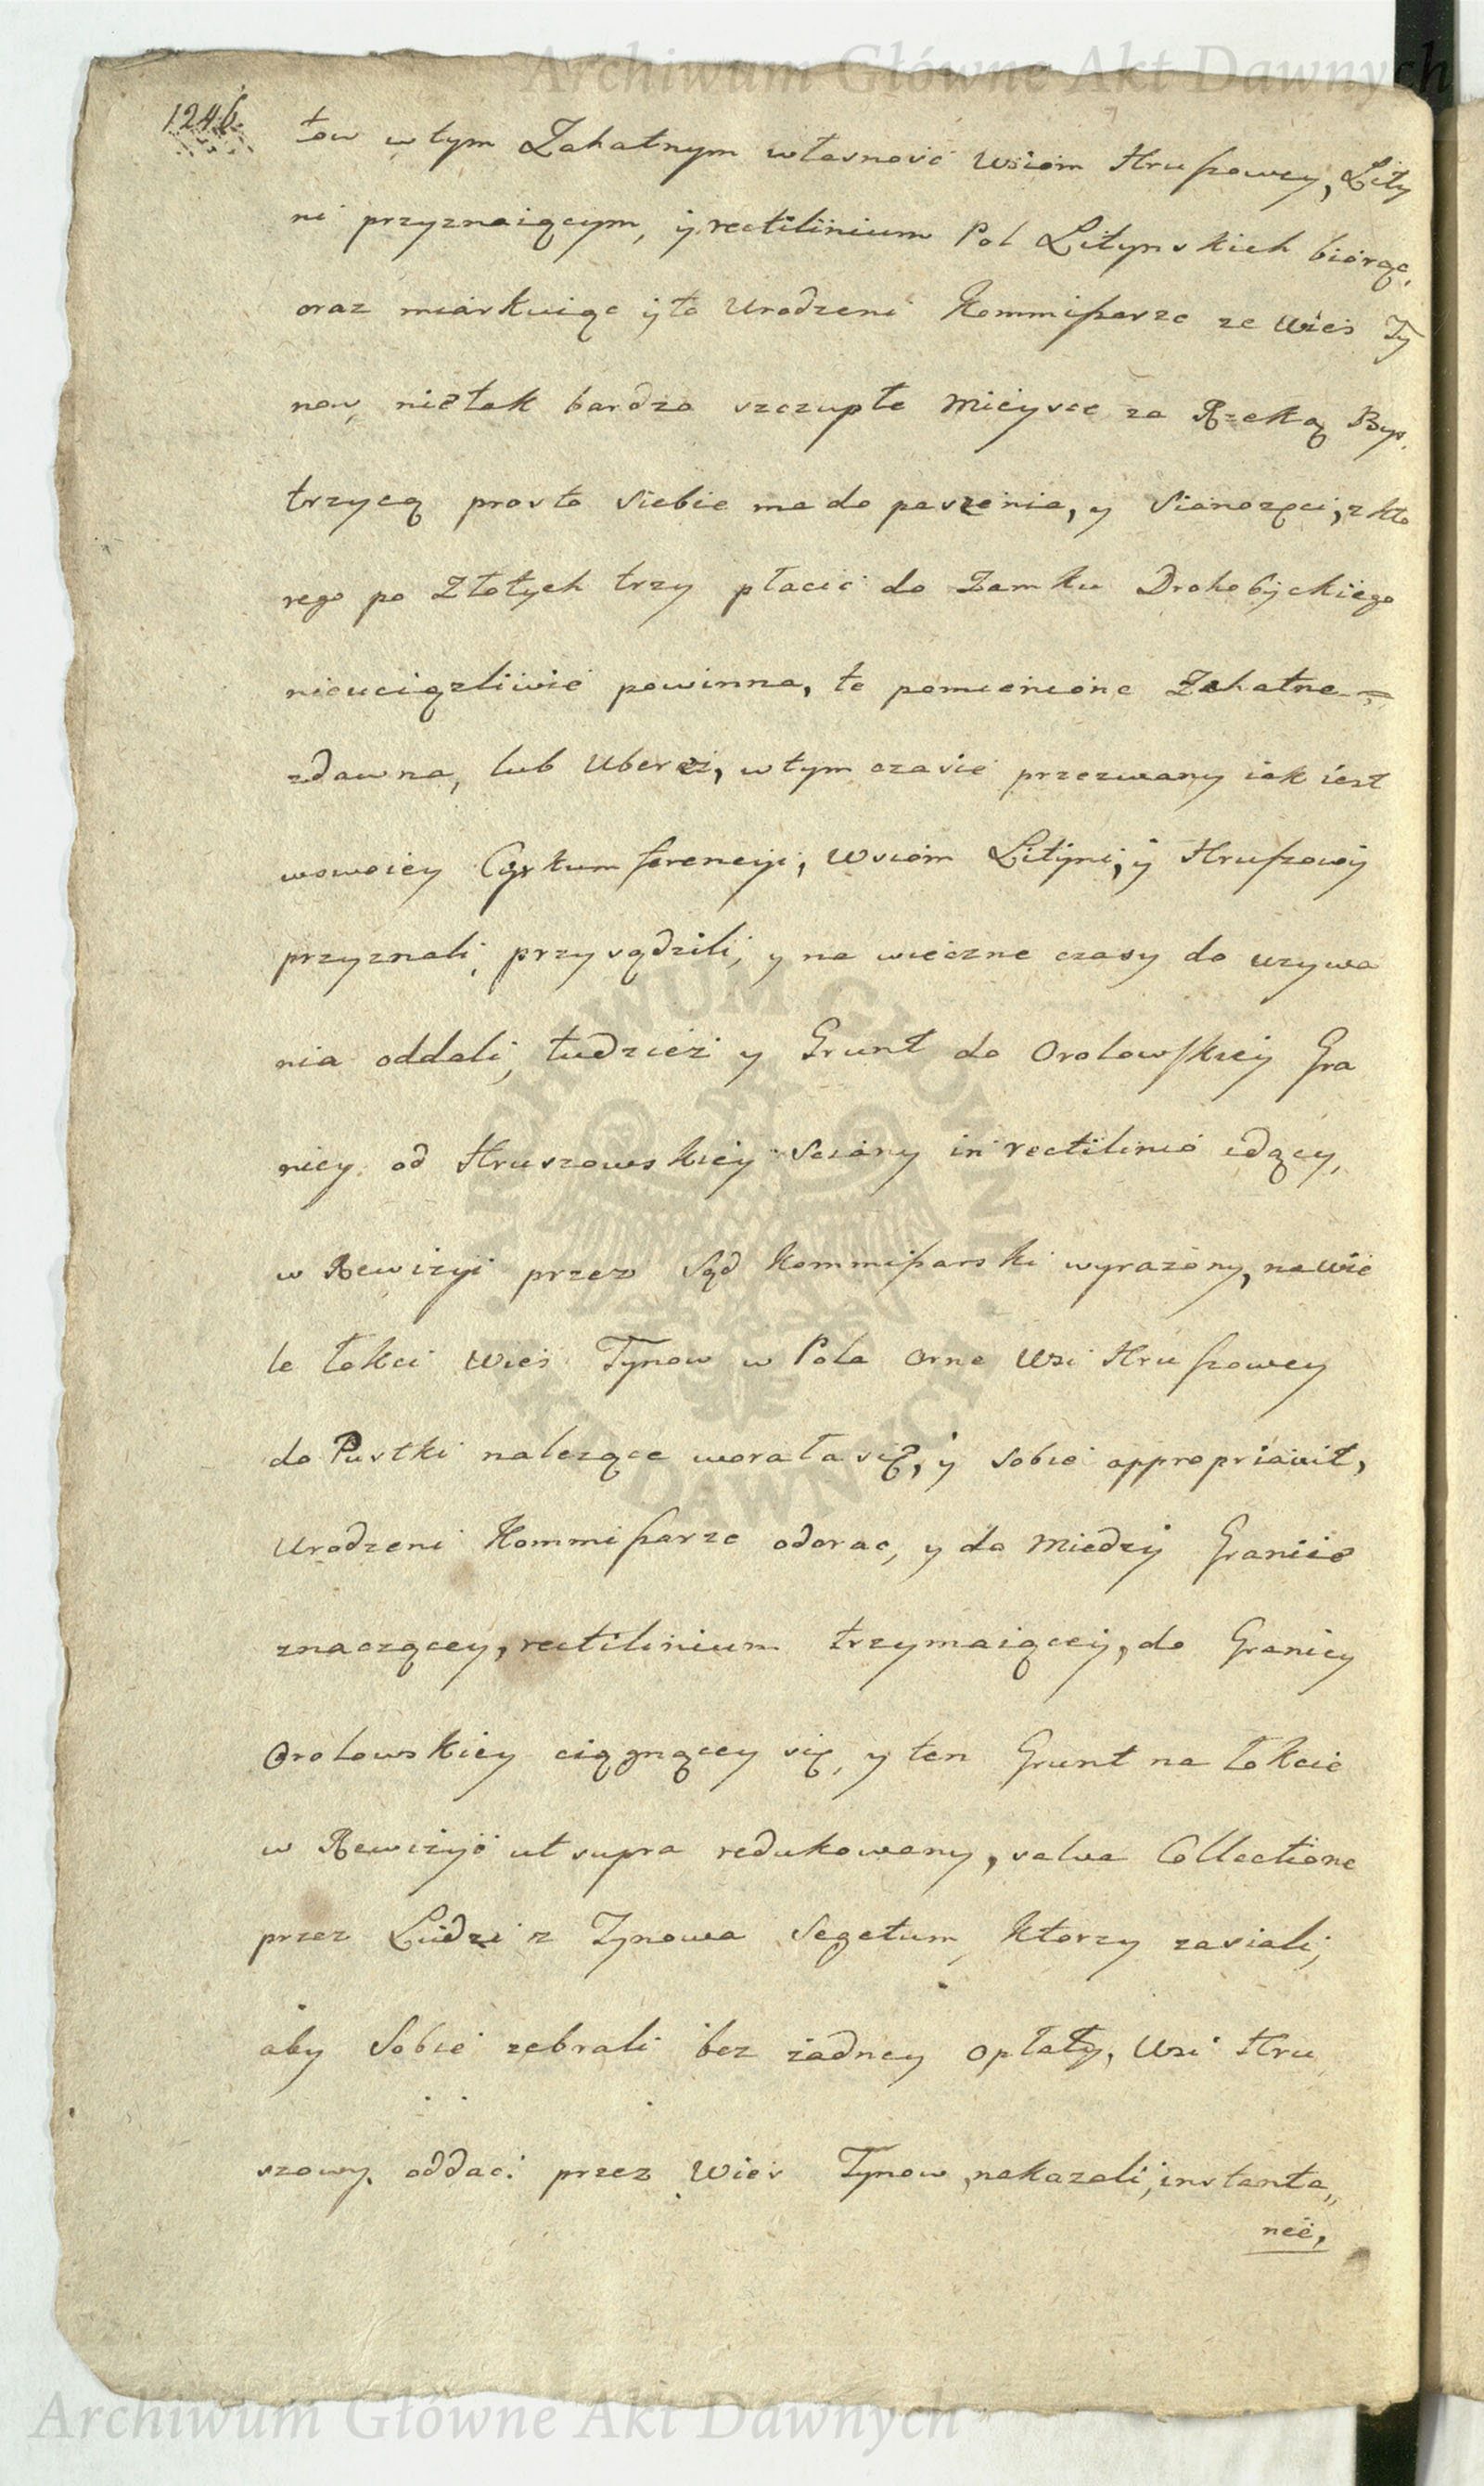 Archiwum Główne Akt Dawnych
1246.
tow w tym Zahatnym własność Wsiom Hruszowey, Lity
ni przyznaiącym, y rectilinium Pol Litynskich biorąc,
oraz miarkuiąc y to Urodzeni Kommissarze ze Wieś Ty
now, nietak bardzo szczupłe Mieysce za Rzeką Bys,
trzycą prosto siebie ma do paszenia, y Sianożęci, z kto
rego po Złotych trzy płacić do Zamku Drohobyckiego
nieuciązliwie powinna, te pomienione Zahatne =
zdawna, lub Uberez, w tym czasie przezwany iak iest
wswoiey Cyrkumferencyi, Wsiom Lityni, y Hruszowy
przyznali, przysądzili, y na wieczne czasy do uzywa
nia oddali, tudzież y Grunt do Orolowskiey Gra
nicy od Hruszowskiey Sciany in rectilinio idący,
w Rewizyi przez Sąd Kommissarski wyrażony, na wie
le łokci Wieś Tynow w Pola Orne Wsi Hruszowey
do Pustki nalezące worała się, y sobie appropriavit,
Urodzeni Kommissarze odorac, y do Miedzy Granice
znaczącey, rectilinium trzymaiącey, do Granicy
Orolowskiey ciągnącey się, y ten Grunt na łokcie
w Rewizyi ut supra redukowany, salva Collectione
przez Ludzi z Tynowa Segetum, Ktorzy zasiali,
aby Sobie zebrali bez żadney opłaty, Wsi Hru
szowy oddać przez Wieś Tynow nakazali, instanta„
neè,
ARCHIWUM GŁÓWNE AKT DAWNYCH
Archiwum Główne Akt Dawnych